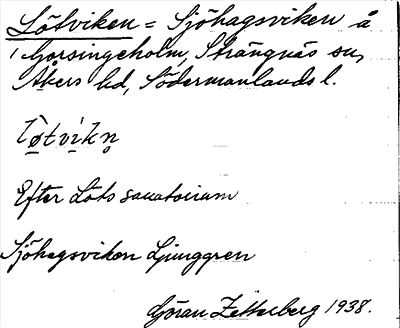 Lötviken = Sjöhagsviken å
Gorsingeholm, Strängnäs sn,
Åkers hd, Södermanlands l.
Efter Löts sanatorium
Sjöhagsviken Ljunggren
Göran Zetterberg 1938.